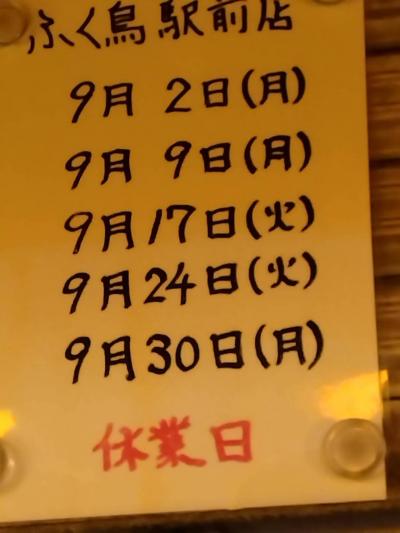 ふく鳥駅前店
9月 2日(月)
9月 9日(月)
9月17日(火)
9月24日(火)
9月30日(月)
休業日